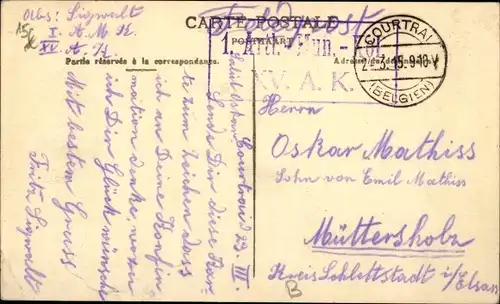 Abs: Sigwalt
I. A. M. K.
XV. A. K.
CARTE POSTALE
Feldpost
POSTKAART
1. Artl. Mun. - Kol.
XV. A. K.
Partie réservée à la correspondance.
COURTRAI
2 .3.15.9-10V
(BELGIEN)
Herrn
Oskar Mathiss
Sohn von Emil Mathiss
Müttersholz
Kreis Schlettstadt i/Elsass
Courtrai 23. III.
Sende Dir diese Kar-
te zum Zeichen dass
ich an Deine Konfir-
mation denke, wozu
ich Dir Glück wünsche
Mit bestem Gruss
Fritz Sigwalt
B